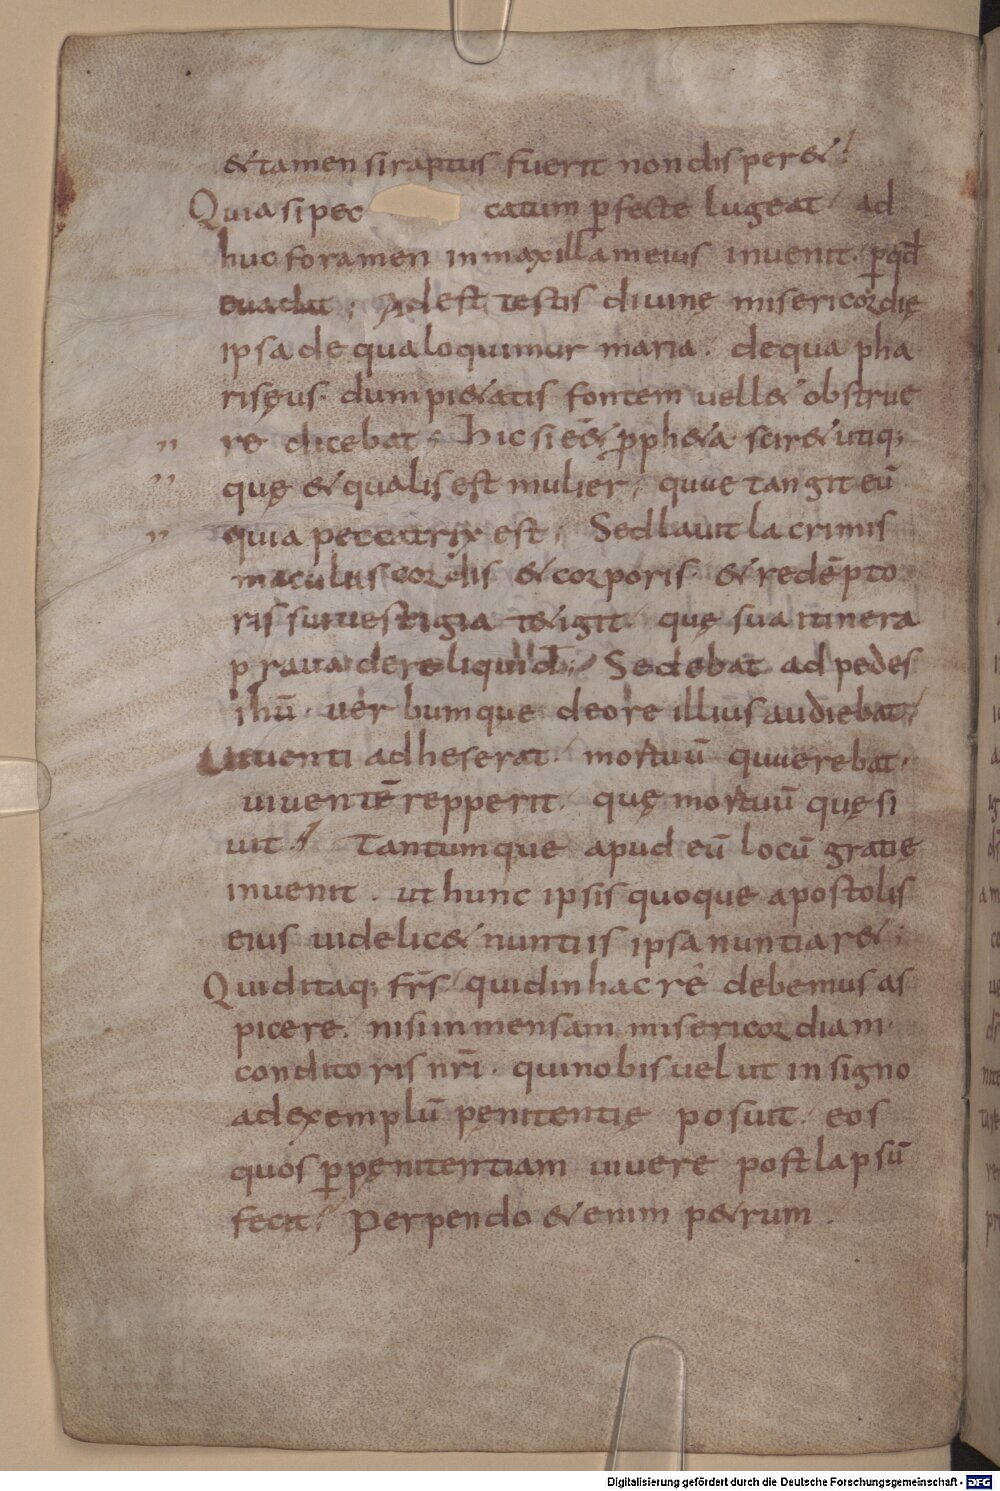 & tamen si raptus fuerit non disper&;
Quia si pec catum ꝑfecte lugeat ad
huc foramen in maxilla meius inuenit. ꝑqđ
euadat; Adest testis diuine misericordię
ipsa de qua loquimur maria. de qua pha
risęus. dum pi&atis fontem uell& obstrue
re dicebat; hic si eē& ꝓph&a scir& utiq;
quę & qualis est mulier, quae tangit eū
quia peccatrix est; Sed lauit lacrimis
maculas cordis & corporis. & redēpto
ris sui uestigia t&igit. quę sua itinera
praua dereliquid; Sedebat ad pedes
ihū. uerbumque de ore illius audiebat;
Uiuenti adheserat. mortuū quaerebat.
uiuentē repperit. quę mortuū quęsi
uit; Tantumque apud eū locū gratię
inuenit. ut hunc ipsis quoque apostolis
eius uidelic& nuntiis ipsa nuntiar&;
Quid itaq; frs̄ quid in hac re debemus as
picere. nisi inmensam misericordiam
conditoris nrī. qui nobis uel ut in signo
ad exemplū pęnitentię posuit. eos
quos ꝑ pęnitentiam uiuere post lapsū
fecit; Perpendo &enim p&rum.
Digitalisierung gefördert durch die Deutsche Forschungsgemeinschaft - DFG